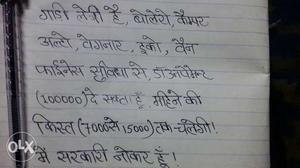 गाडी लेनी है, बोलेरो, कैम्पर
अल्टो, वेगनार, इको, वैन
फाईनेंस सुविधा से, डाउनपेमेंट
(100000) दे सकता हूँ महिने की
किस्त (7000 से 15000) तक चलेगी!
में सरकारी नौकर हूँ!
OLX